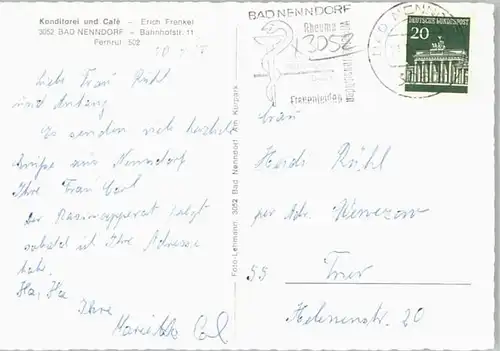 Konditorei und Café - Erich Frenkel
3052 BAD NENNDORF - Bahnhofstr. 11
Fernruf 502
Liebe Frau Rühl
und Anhang
Es senden viele herzliche
Grüße aus Nenndorf
Ihre Frau Carl
Der Rasierapparat folgt
sobald ich Ihre Adresse
habe.
Ha, Ha
Ihre
Carl
Foto-Lehmann 3052 Bad Nenndorf Am Kurpark
BAD NENNDORF
Rheuma
3052
Frauenleiden
BAD NENNDORF
DEUTSCHE BUNDESPOST
20
Frau
Rühl
per Adr.
55 Trier
Helenenstr. 20